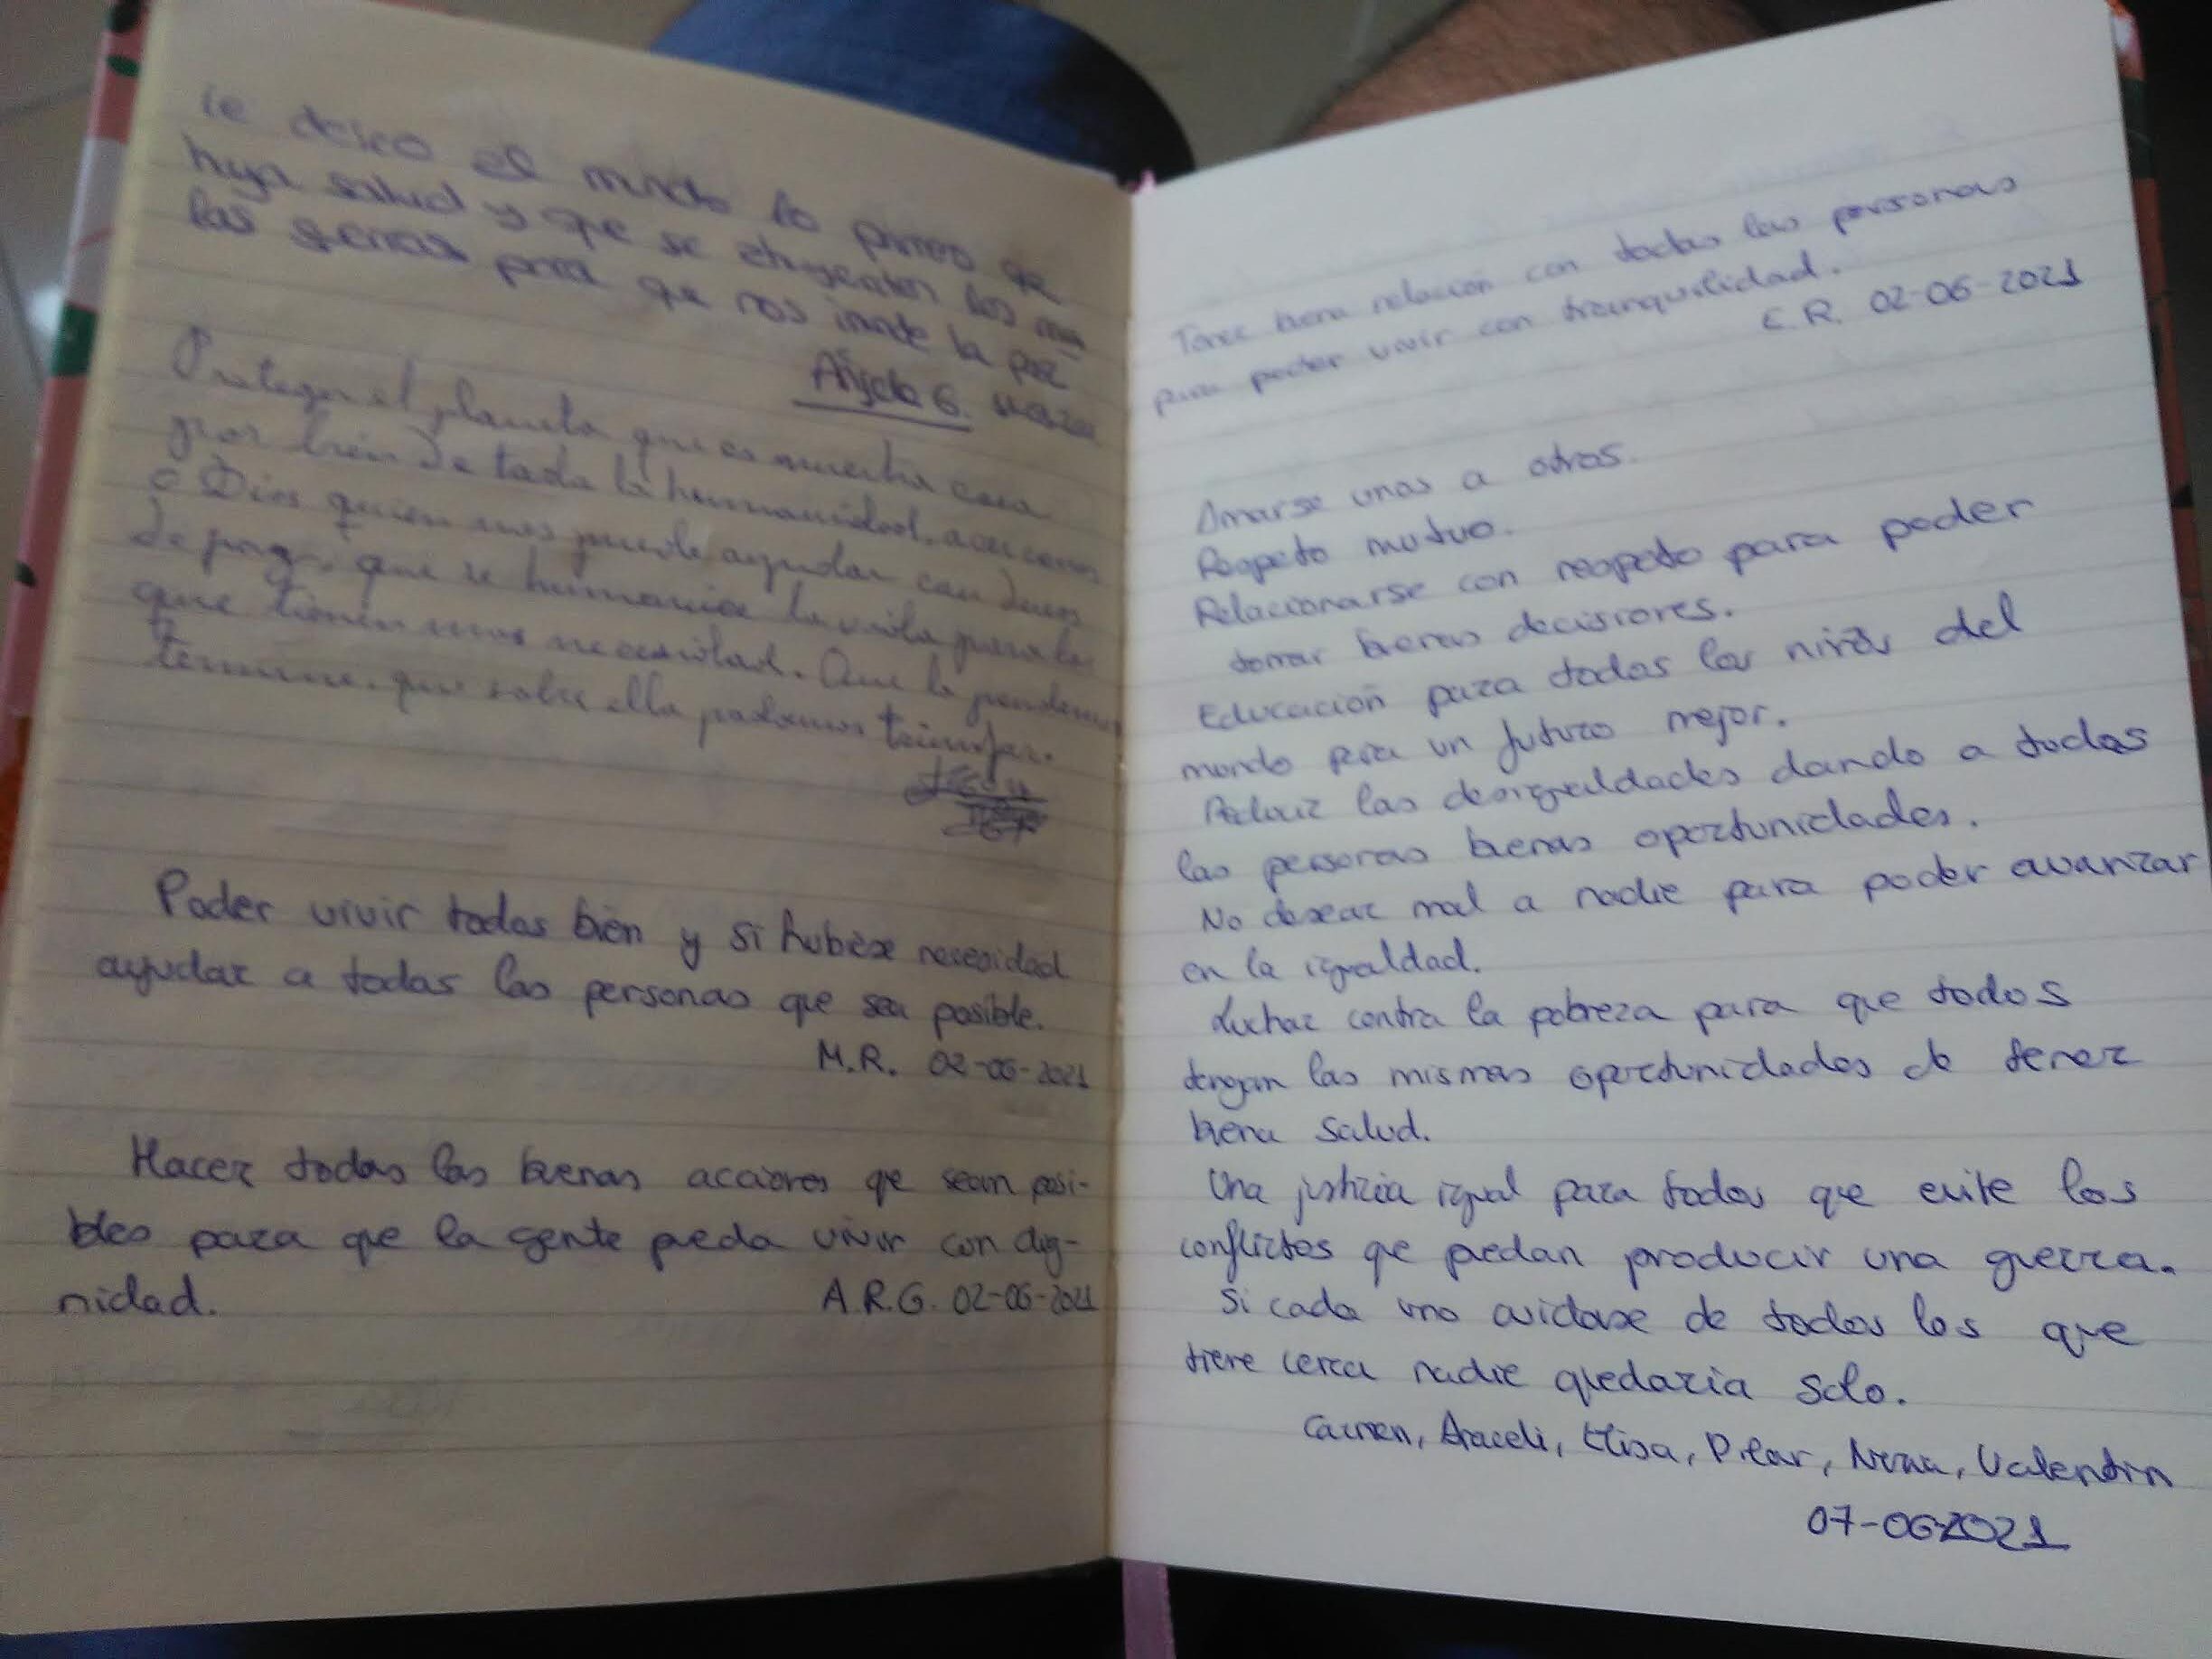 le deseo el mundo lo primero que
haya salud y que se ahuyenten los
las guerras para que nos inunde la paz
Angela G.
Proteger el planeta que es nuestra casa
por bien de toda la humanidad,
o Dios quien nos puede ayudar con
de paz, que se humanice la vida para los
que tienen mas necesidad. Que la pandemia
termine. que sobre ella podamos triunfar.
Poder vivir todos bien y si hubiese necesidad
ayudar a todas las personas que sea posible.
M.R. 02-06-2021
Hacer todas las buenas acciones que sean posi-
bles para que la gente pueda vivir con dig-
nidad. A.R.G. 02-06-2021
Tener buena relación con todas las personas
para poder vivir con tranquilidad.
C.R. 02-06-2021
Amarse unos a otros.
Respeto mutuo.
Relacionarse con respeto para poder
tomar buenas decisiones.
Educación para todos los niños del
mundo para un futuro mejor.
Reducir las desigualdades dando a todas
las personas buenas oportunidades.
No desear mal a nadie para poder avanzar
en la igualdad.
Luchar contra la pobreza para que todos
tengan las mismas oportunidades de tener
buena salud.
Una justicia igual para todos que evite los
conflictos que puedan producir una guerra.
Si cada uno cuidase de todos los que
tiene cerca nadie quedaria solo.
Carmen, Araceli, Elisa, Pilar, Valentin
07-06-2021